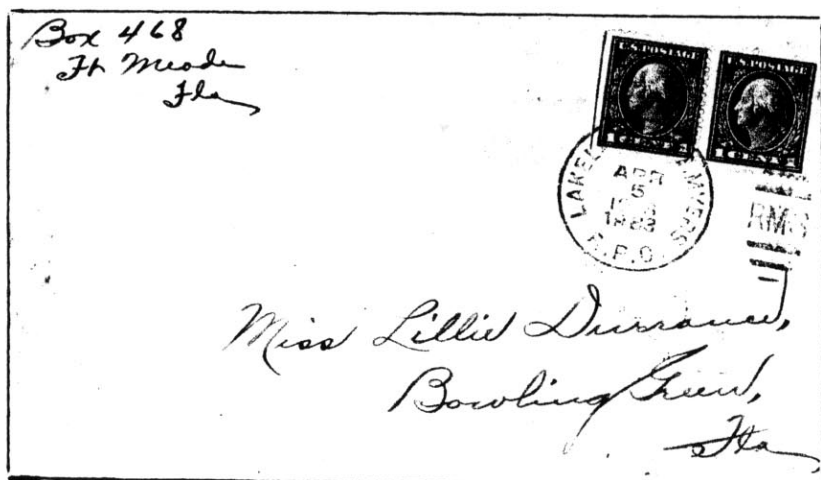 Box 468
Ft Meade
Fla
U.S. POSTAGE
U.S. POSTAGE
1 CENT 1
1 CENT 1
LAKEL MYERS
APR
5
1923
R.P.O.
RMS
Miss Lillie Durrance,
Bowling Green,
Fla